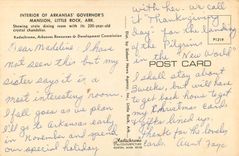 INTERIOR OF ARKANSAS' GOVERNOR'S
MANSION, LITTLE ROCK, ARK.
Showing state dining room with its 200-year-old
crystal chandelier.
Kodachrome, Arkansas Resources or Development Commission
Dear Madeline I have
not seen this but my
sister says it is a
most interesting room.
If all goes as we plan
I'll go to Arkansas early
in November and spend
our special holiday
with her. we call
it "Thanksgiving
Day" for the landing
of the Pilgrims in
the "New World"
P1218
POST CARD
I shall stay about
2 weeks, but will have
to get back home to get
my Christmas cards
gifts lined up.
Thanks for his lovely
cards. Aunt Faye